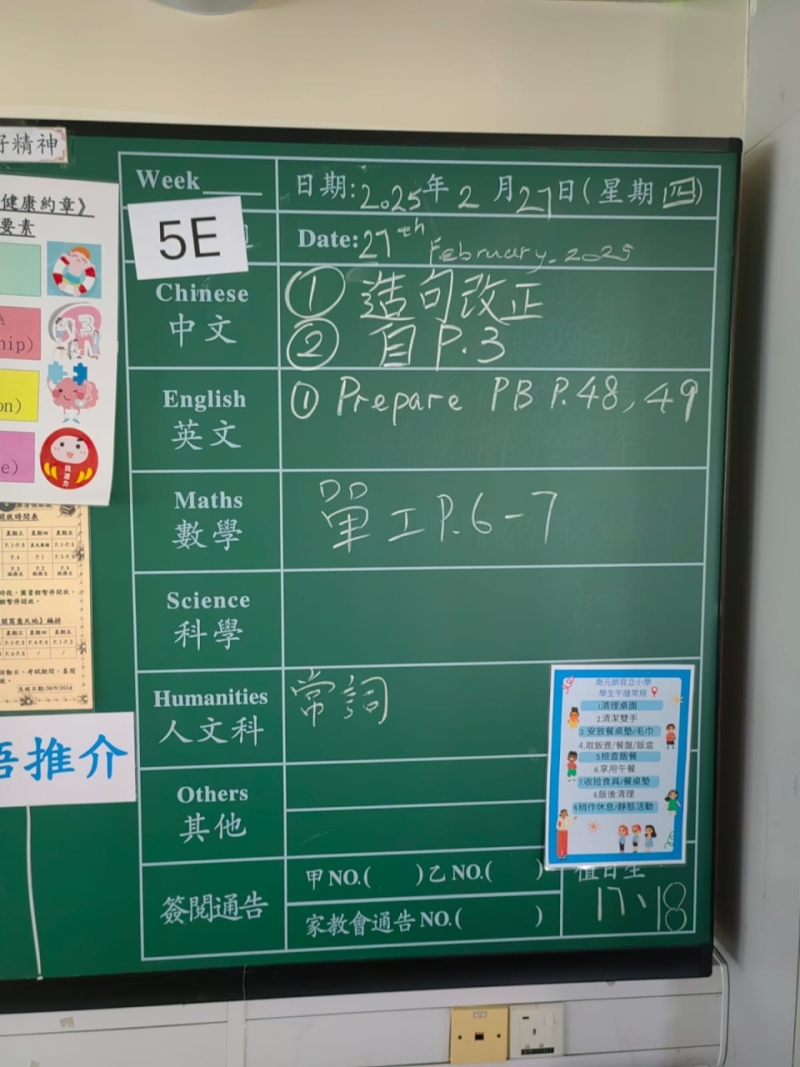 好精神
Week
日期:2025年2月27日(星期四)
5E
Date:27th February.2025
健康約章》
要素
Chinese
中文
① 造句改正
② 自P.3
English
英文
① Prepare PB P.48, 49
Maths
數學
單工P.6-7
Science
科學
Humanities
人文科
常詞
Others
其他
簽閱通告
甲NO.( )乙NO.( )
家教會通告NO.( )
值日生
17、18
ship)
on)
e)
我達力
星期三 星期四 星期五
南元朗官立小學
學生午膳常規
1.清理桌面
2.清潔雙手
3.安放餐桌墊/毛巾
4.取飯壺/餐盤/飯盒
5.檢查飯餐
6.享用午餐
7.收拾食具/餐桌墊
8.飯後清理
9.稍作休息/靜態活動
語推介